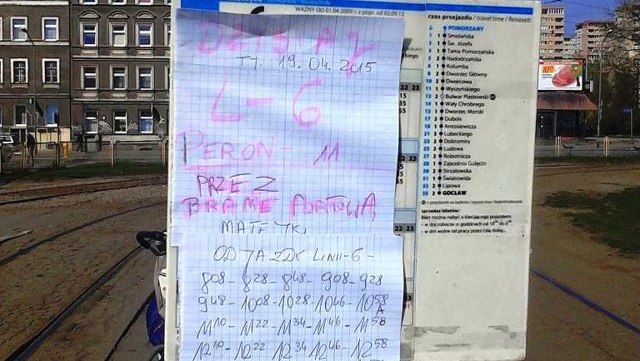 DZIŚ A 2
T7. 19.04.2015
L-6
PERON - 11
PRZEZ
BRAME PORTOWĄ
MATEJKI
ODJAZDY LINII-6-
8 08 - 8 28 - 8 48 - 9 08 - 9 28
9 48 - 10 08 - 10 28 - 10 46 - 10 58
A
11 10 - 11 22 - 11 34 - 11 46 - 11 58
12 10 - 12 22 12 34 12 46 - 12 58
WAŻNY OD 01.04.2009 r. z popr. od 02.09.13
22 23
czas przejazdu / travel time / Reisezeit:
POMORZANY
Smolańska
Św. Józefa
Tama Pomorzańska
Nadodrzańska
Kolumba
Dworzec Główny
Dworcowa
Wyszyńskiego
Bulwar Piastowski
Wały Chrobrego
Dworzec Morski
Dubois
Antosiewicza
Lubeckiego
Dobrominy
Ludowa
Robotnicza
Zajezdnia Golęcin
Strzałowska
Światowida
Lipowa
GOCŁAW
sprzedaż biletów:
Bilet można nabyć u kierującego pojazdem:
- w dni wolne od pracy przez całą dobę